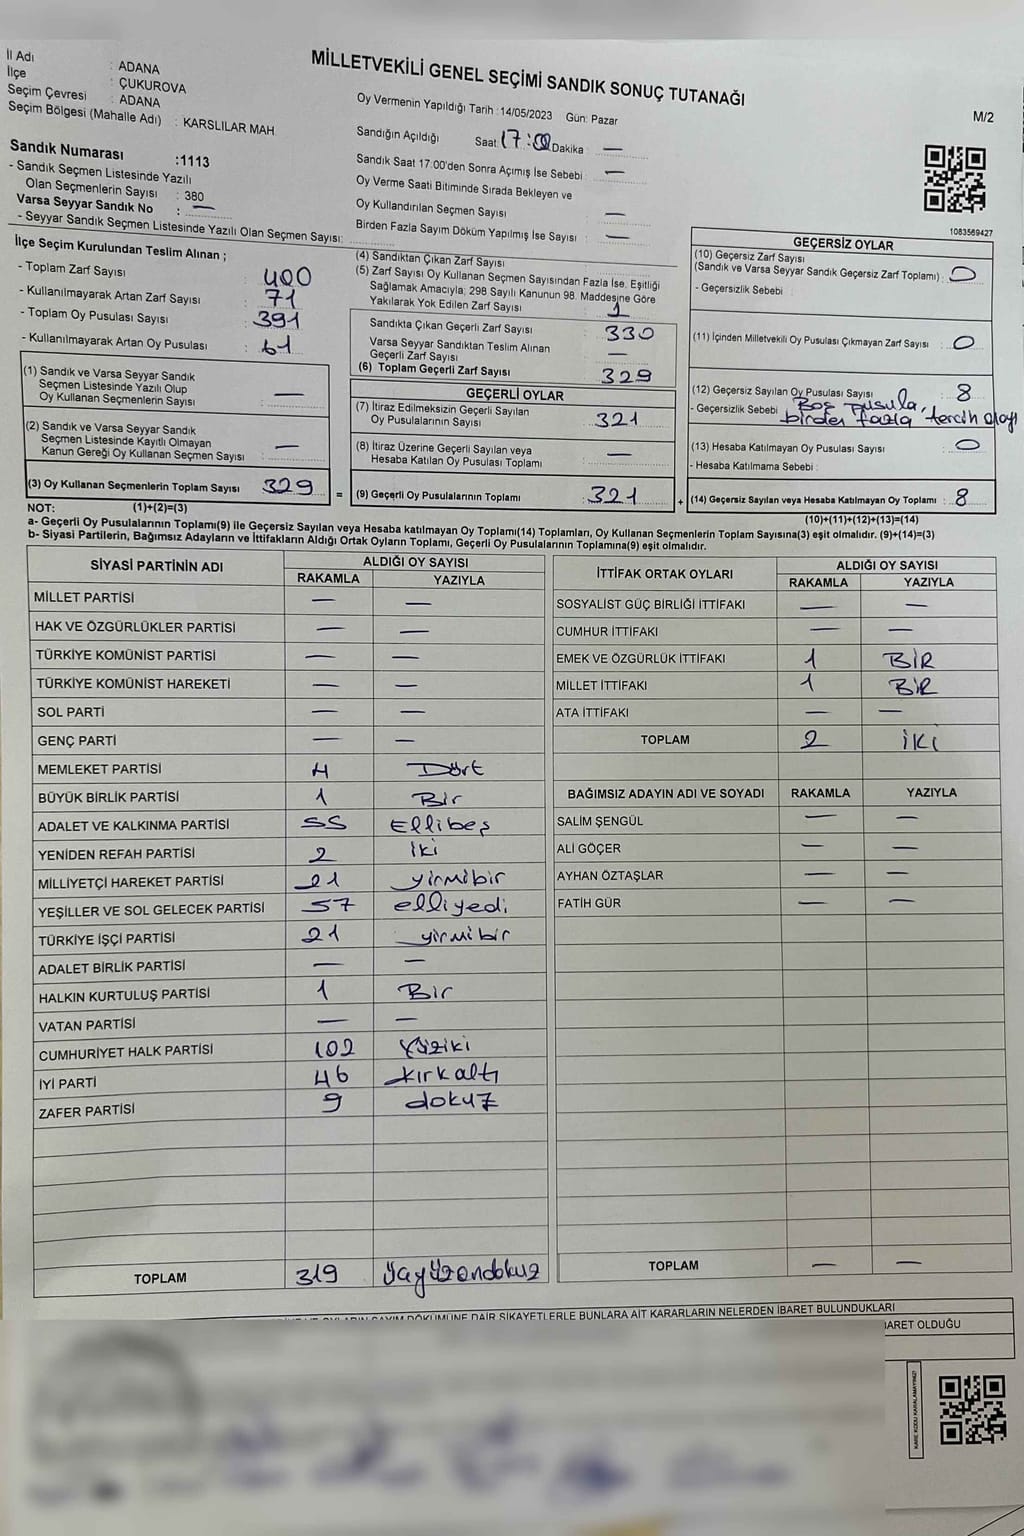 MİLLETVEKİLİ GENEL SEÇİMİ SANDIK SONUÇ TUTANAĞI
M/2
İl Adı : ADANA
İlçe : ÇUKUROVA
Seçim Çevresi : ADANA
Seçim Bölgesi (Mahalle Adı) : KARSLILAR MAH.
Sandık Numarası :1113
- Sandık Seçmen Listesinde Yazılı
Olan Seçmenlerin Sayısı : 380
Varsa Seyyar Sandık No : —
- Seyyar Sandık Seçmen Listesinde Yazılı Olan Seçmen Sayısı:
Oy Vermenin Yapıldığı Tarih :14/05/2023 Gün: Pazar
Sandığın Açıldığı Saat 17:00 Dakika : —
Sandık Saat 17:00'den Sonra Açımış İse Sebebi : —
Oy Verme Saati Bitiminde Sırada Bekleyen ve
Oy Kullandırılan Seçmen Sayısı : —
Birden Fazla Sayım Döküm Yapılmış İse Sayısı : —
1083569427
İlçe Seçim Kurulundan Teslim Alınan ;
- Toplam Zarf Sayısı : 400
- Kullanılmayarak Artan Zarf Sayısı : 71
- Toplam Oy Pusulası Sayısı : 391
- Kullanılmayarak Artan Oy Pusulası : 61
(1) Sandık ve Varsa Seyyar Sandık
Seçmen Listesinde Yazılı Olup
Oy Kullanan Seçmenlerin Sayısı : —
(2) Sandık ve Varsa Seyyar Sandık
Seçmen Listesinde Kayıtlı Olmayan
Kanun Gereği Oy Kullanan Seçmen Sayısı : —
(3) Oy Kullanan Seçmenlerin Toplam Sayısı : 329
(4) Sandıktan Çıkan Zarf Sayısı :
(5) Zarf Sayısı Oy Kullanan Seçmen Sayısından Fazla İse, Eşitliği
Sağlamak Amacıyla; 298 Sayılı Kanunun 98. Maddesine Göre
Yakılarak Yok Edilen Zarf Sayısı : 1
Sandıkta Çıkan Geçerli Zarf Sayısı : 330
Varsa Seyyar Sandıktan Teslim Alınan
Geçerli Zarf Sayısı : —
(6) Toplam Geçerli Zarf Sayısı : 329
GEÇERLİ OYLAR
(7) İtiraz Edilmeksizin Geçerli Sayılan
Oy Pusulalarının Sayısı : 321
(8) İtiraz Üzerine Geçerli Sayılan veya
Hesaba Katılan Oy Pusulası Toplamı : —
= (9) Geçerli Oy Pusulalarının Toplamı : 321
GEÇERSİZ OYLAR
(10) Geçersiz Zarf Sayısı
(Sandık ve Varsa Seyyar Sandık Geçersiz Zarf Toplamı) : 0
- Geçersizlik Sebebi :
(11) İçinden Milletvekili Oy Pusulası Çıkmayan Zarf Sayısı : 0
(12) Geçersiz Sayılan Oy Pusulası Sayısı : 8
- Geçersizlik Sebebi : Boş pusula,
birden fazla tercih olayı
(13) Hesaba Katılmayan Oy Pusulası Sayısı : 0
- Hesaba Katılmama Sebebi :
+ (14) Geçersiz Sayılan veya Hesaba Katılmayan Oy Toplamı : 8
NOT: (1)+(2)=(3)
(10)+(11)+(12)+(13)=(14)
a- Geçerli Oy Pusulalarının Toplamı(9) ile Geçersiz Sayılan veya Hesaba katılmayan Oy Toplamı(14) Toplamları, Oy Kullanan Seçmenlerin Toplam Sayısına(3) eşit olmalıdır. (9)+(14)=(3)
b- Siyasi Partilerin, Bağımsız Adayların ve İttifakların Aldığı Ortak Oyların Toplamı, Geçerli Oy Pusulalarının Toplamına(9) eşit olmalıdır.
SİYASİ PARTİNİN ADI ALDIĞI OY SAYISI
RAKAMLA YAZIYLA
MİLLET PARTİSİ — —
HAK VE ÖZGÜRLÜKLER PARTİSİ — —
TÜRKİYE KOMÜNİST PARTİSİ — —
TÜRKİYE KOMÜNİST HAREKETİ — —
SOL PARTİ — —
GENÇ PARTİ — —
MEMLEKET PARTİSİ 4 Dört
BÜYÜK BİRLİK PARTİSİ 1 Bir
ADALET VE KALKINMA PARTİSİ 55 Ellibeş
YENİDEN REFAH PARTİSİ 2 iki
MİLLİYETÇİ HAREKET PARTİSİ 21 yirmibir
YEŞİLLER VE SOL GELECEK PARTİSİ 57 elliyedi
TÜRKİYE İŞÇİ PARTİSİ 21 yirmibir
ADALET BİRLİK PARTİSİ — —
HALKIN KURTULUŞ PARTİSİ 1 Bir
VATAN PARTİSİ — —
CUMHURİYET HALK PARTİSİ 102 Yüziki
İYİ PARTİ 46 kırkaltı
ZAFER PARTİSİ 9 dokuz
TOPLAM 319 üçyüzondokuz
İTTİFAK ORTAK OYLARI ALDIĞI OY SAYISI
RAKAMLA YAZIYLA
SOSYALİST GÜÇ BİRLİĞİ İTTİFAKI — —
CUMHUR İTTİFAKI — —
EMEK VE ÖZGÜRLÜK İTTİFAKI 1 BİR
MİLLET İTTİFAKI 1 BİR
ATA İTTİFAKI — —
TOPLAM 2 İKİ
BAĞIMSIZ ADAYIN ADI VE SOYADI RAKAMLA YAZIYLA
SALİM ŞENGÜL — —
ALİ GÖÇER — —
AYHAN ÖZTAŞLAR — —
FATİH GÜR — —
TOPLAM — —
SAYIM DÖKÜMÜNE DAİR ŞİKAYETLERLE BUNLARA AİT KARARLARIN NELERDEN İBARET BULUNDUKLARI
OLDUĞU
KARE KODU KARALAMAYINIZ!